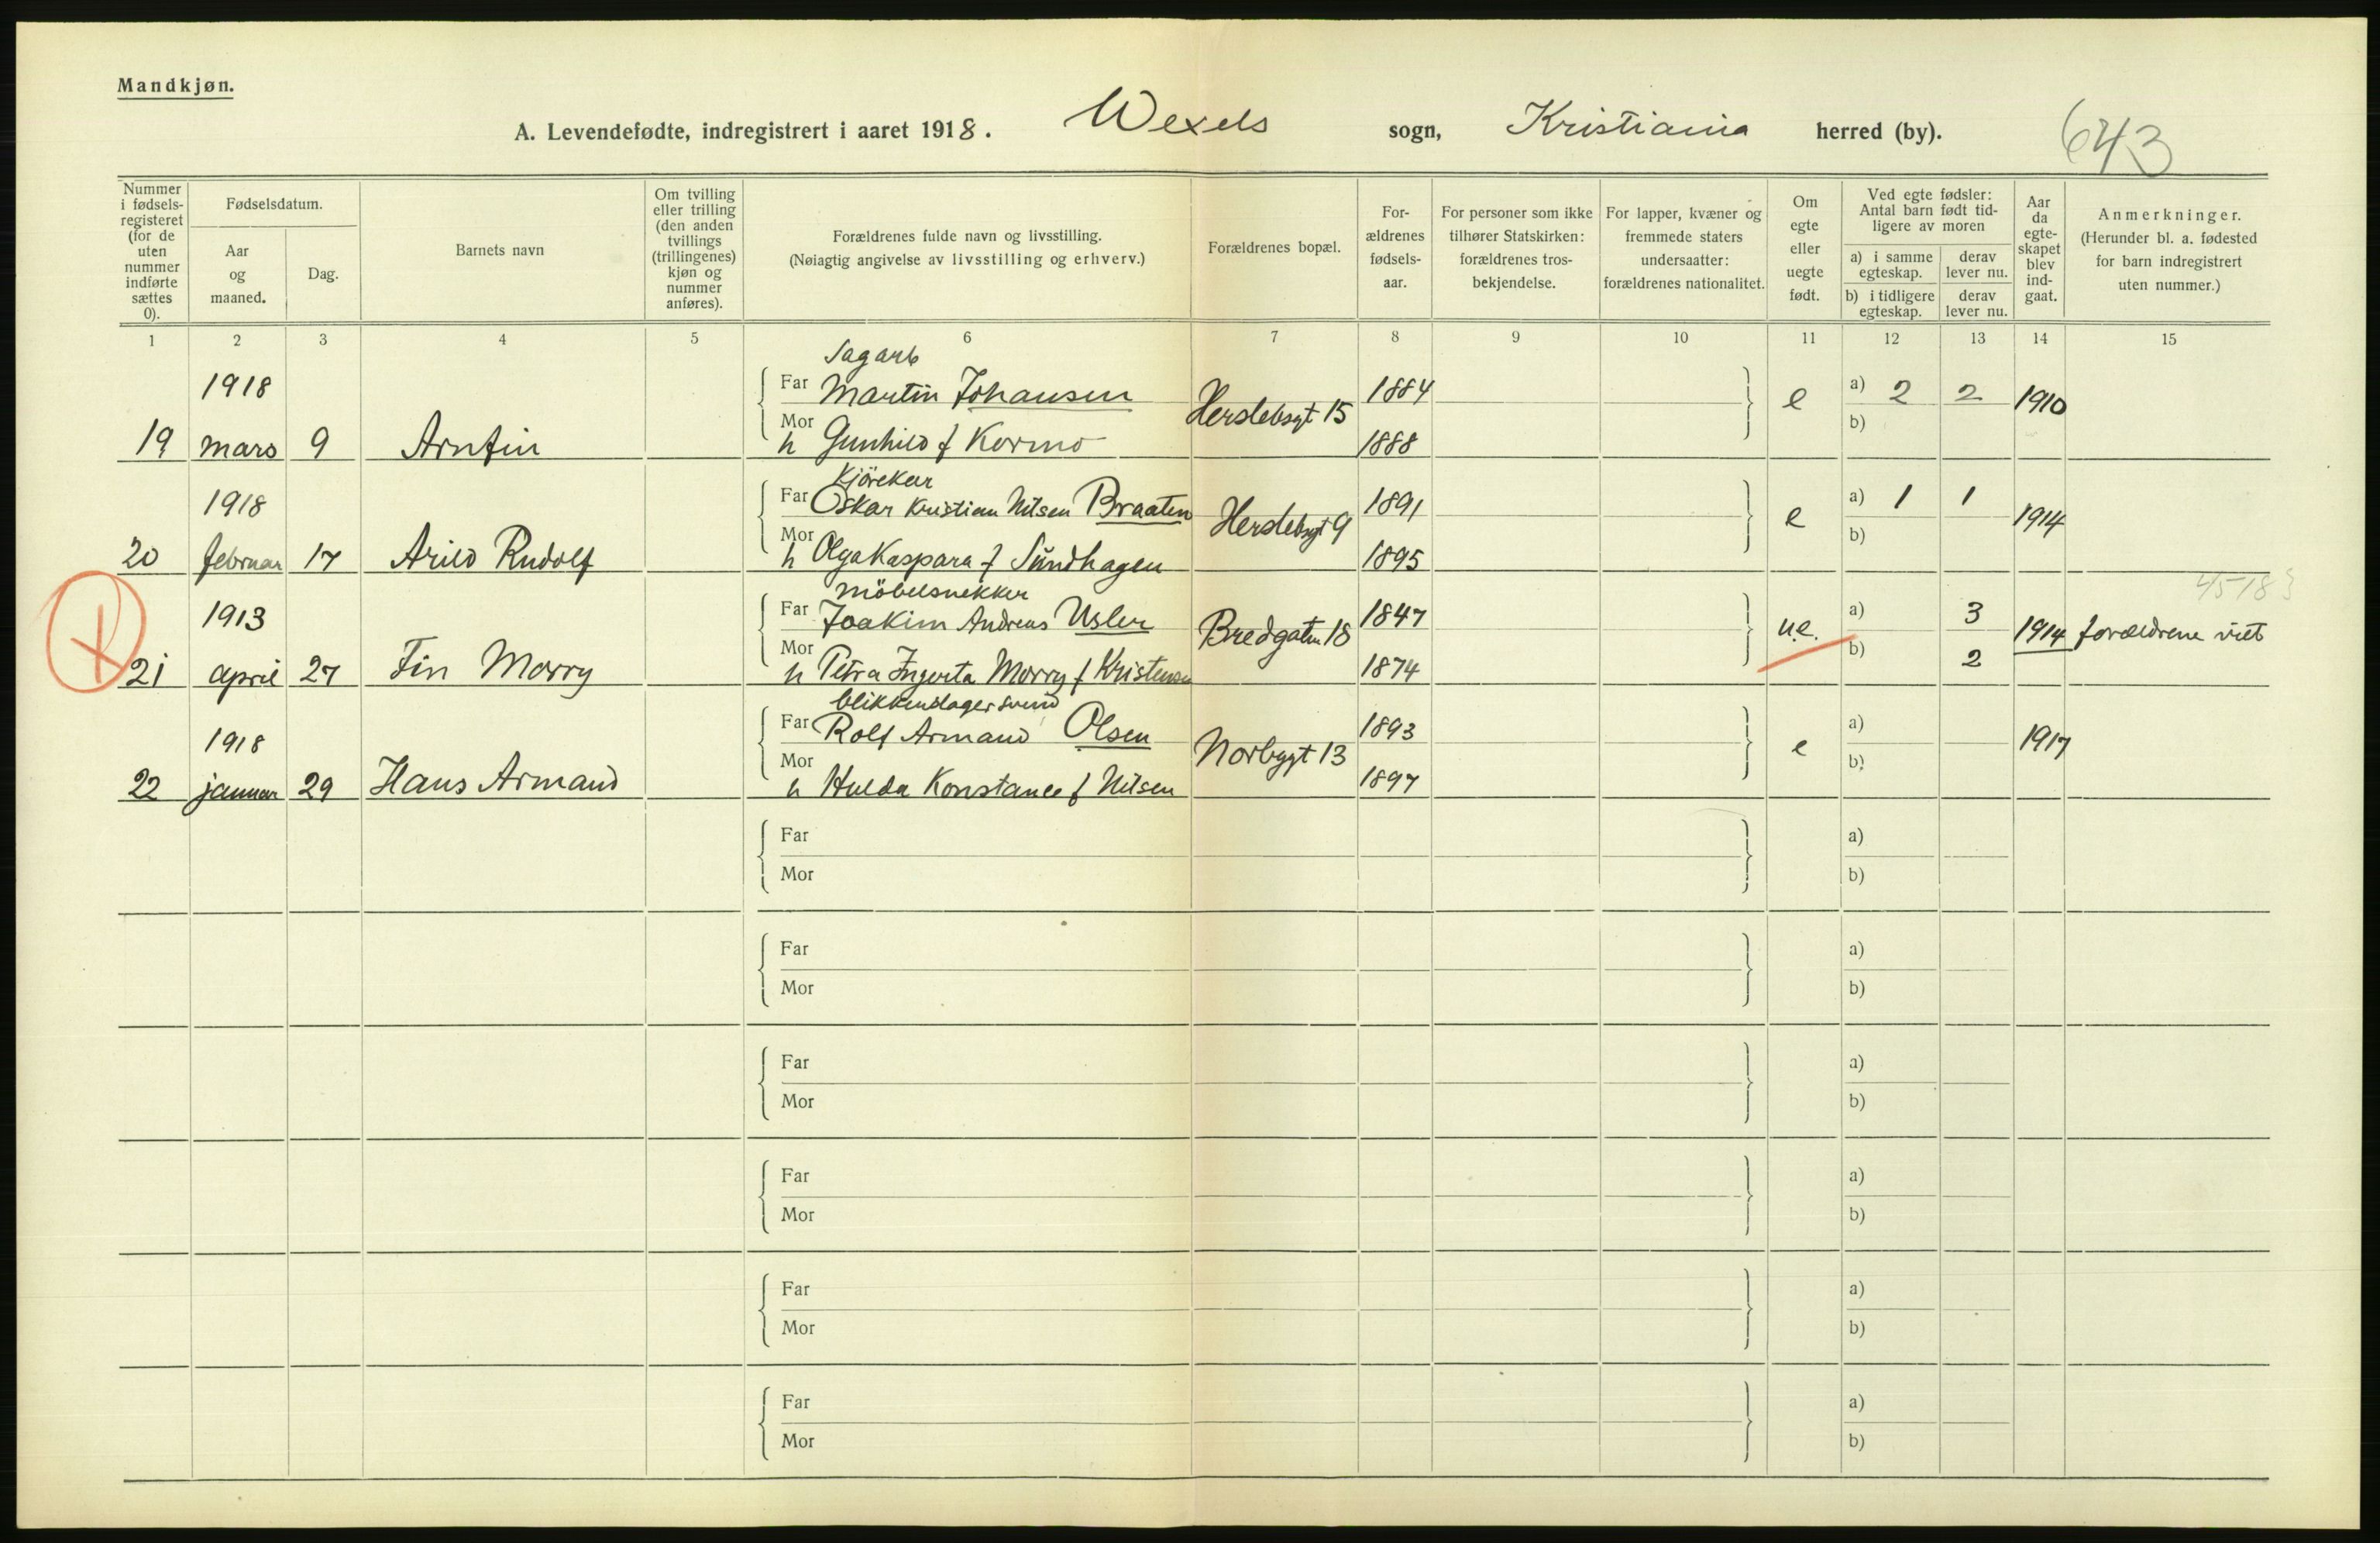 Mandkjøn.
A. Levendefødte, indregistrert i aaret 1918. Wexels sogn, Kristiania herred (by). 643
Nummer i fødsels-registeret (for de uten nummer indførte sættes 0).
Fødselsdatum.
Aar og maaned.
Dag.
Barnets navn
Om tvilling eller trilling (den anden tvillings (trillingenes) kjøn og nummer anføres).
Forældrenes fulde navn og livsstilling.
(Nøiagtig angivelse av livsstilling og erhverv.)
Forældrenes bopæl.
For-ældrenes fødsels-aar.
For personer som ikke tilhører Statskirken: forældrenes tros-bekjendelse.
For lapper, kvæner og fremmede staters undersaatter: forældrenes nationalitet.
Om egte eller uegte født.
Ved egte fødsler: Antal barn født tid-ligere av moren
a) i samme egteskap.
derav lever nu.
b) i tidligere egteskap.
derav lever nu.
Aar da egte-skapet blev ind-gaat.
Anmerkninger.
(Herunder bl. a. fødested for barn indregistrert uten nummer.)
1 2 3 4 5 6 7 8 9 10 11 12 13 14 15
Sagarb
1918 Far Martin Johansen Herslebsgt 15 1884 e a) 2 2 1910
19 mars 9 Arnfin Mor h Gunhild f Kormo 1888 b)
Kjörekar
1918 Far Oskar Kristian Nilsen Braaten Herslebsgt 9 1891 e a) 1 1 1914
20 februar 17 Arild Rudolf Mor h Olga Kaspara f Sundhagen 1895 b)
möbelsnekker 45183
1913 Far Joakim Andreas Usler Bredgaten 18 1847 u.e. a) 3 1914 forældrene viet
21 april 27 Fin Morry Mor h Petra Ingerta Morry f Kristensen 1874 b) 2
blikkenslagersvend
1918 Far Rolf Armand Olsen Norbygt 13 1893 e a) 1917
22 januar 29 Hans Armand Mor h Hulda Konstance f Nilsen 1897 b)
Far a)
Mor b)
Far a)
Mor b)
Far a)
Mor b)
Far a)
Mor b)
Far a)
Mor b)
Far a)
Mor b)